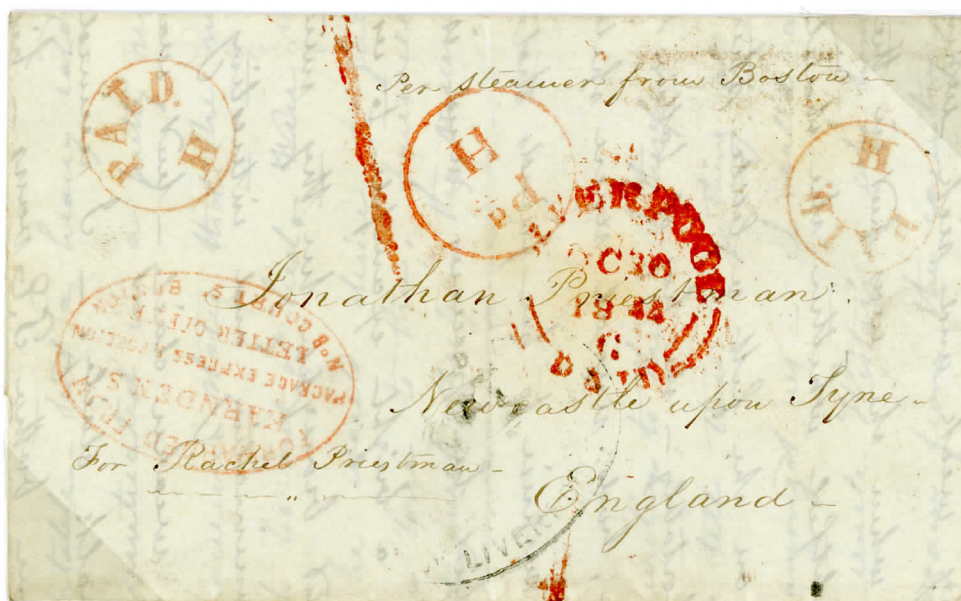 Per steamer from Boston
PAID.
H
H
Pd
H
PAID
LIVERPOOL
OC 30
1844
PAID
Jonathan Priestman
Newcastle upon Tyne
England
For Rachel Priestman
FORWARDED FROM
HARNDEN'S
PACKAGE EXPRESS & FOREIGN
LETTER OFFICE
No 8 COURT ST BOSTON
LIVER